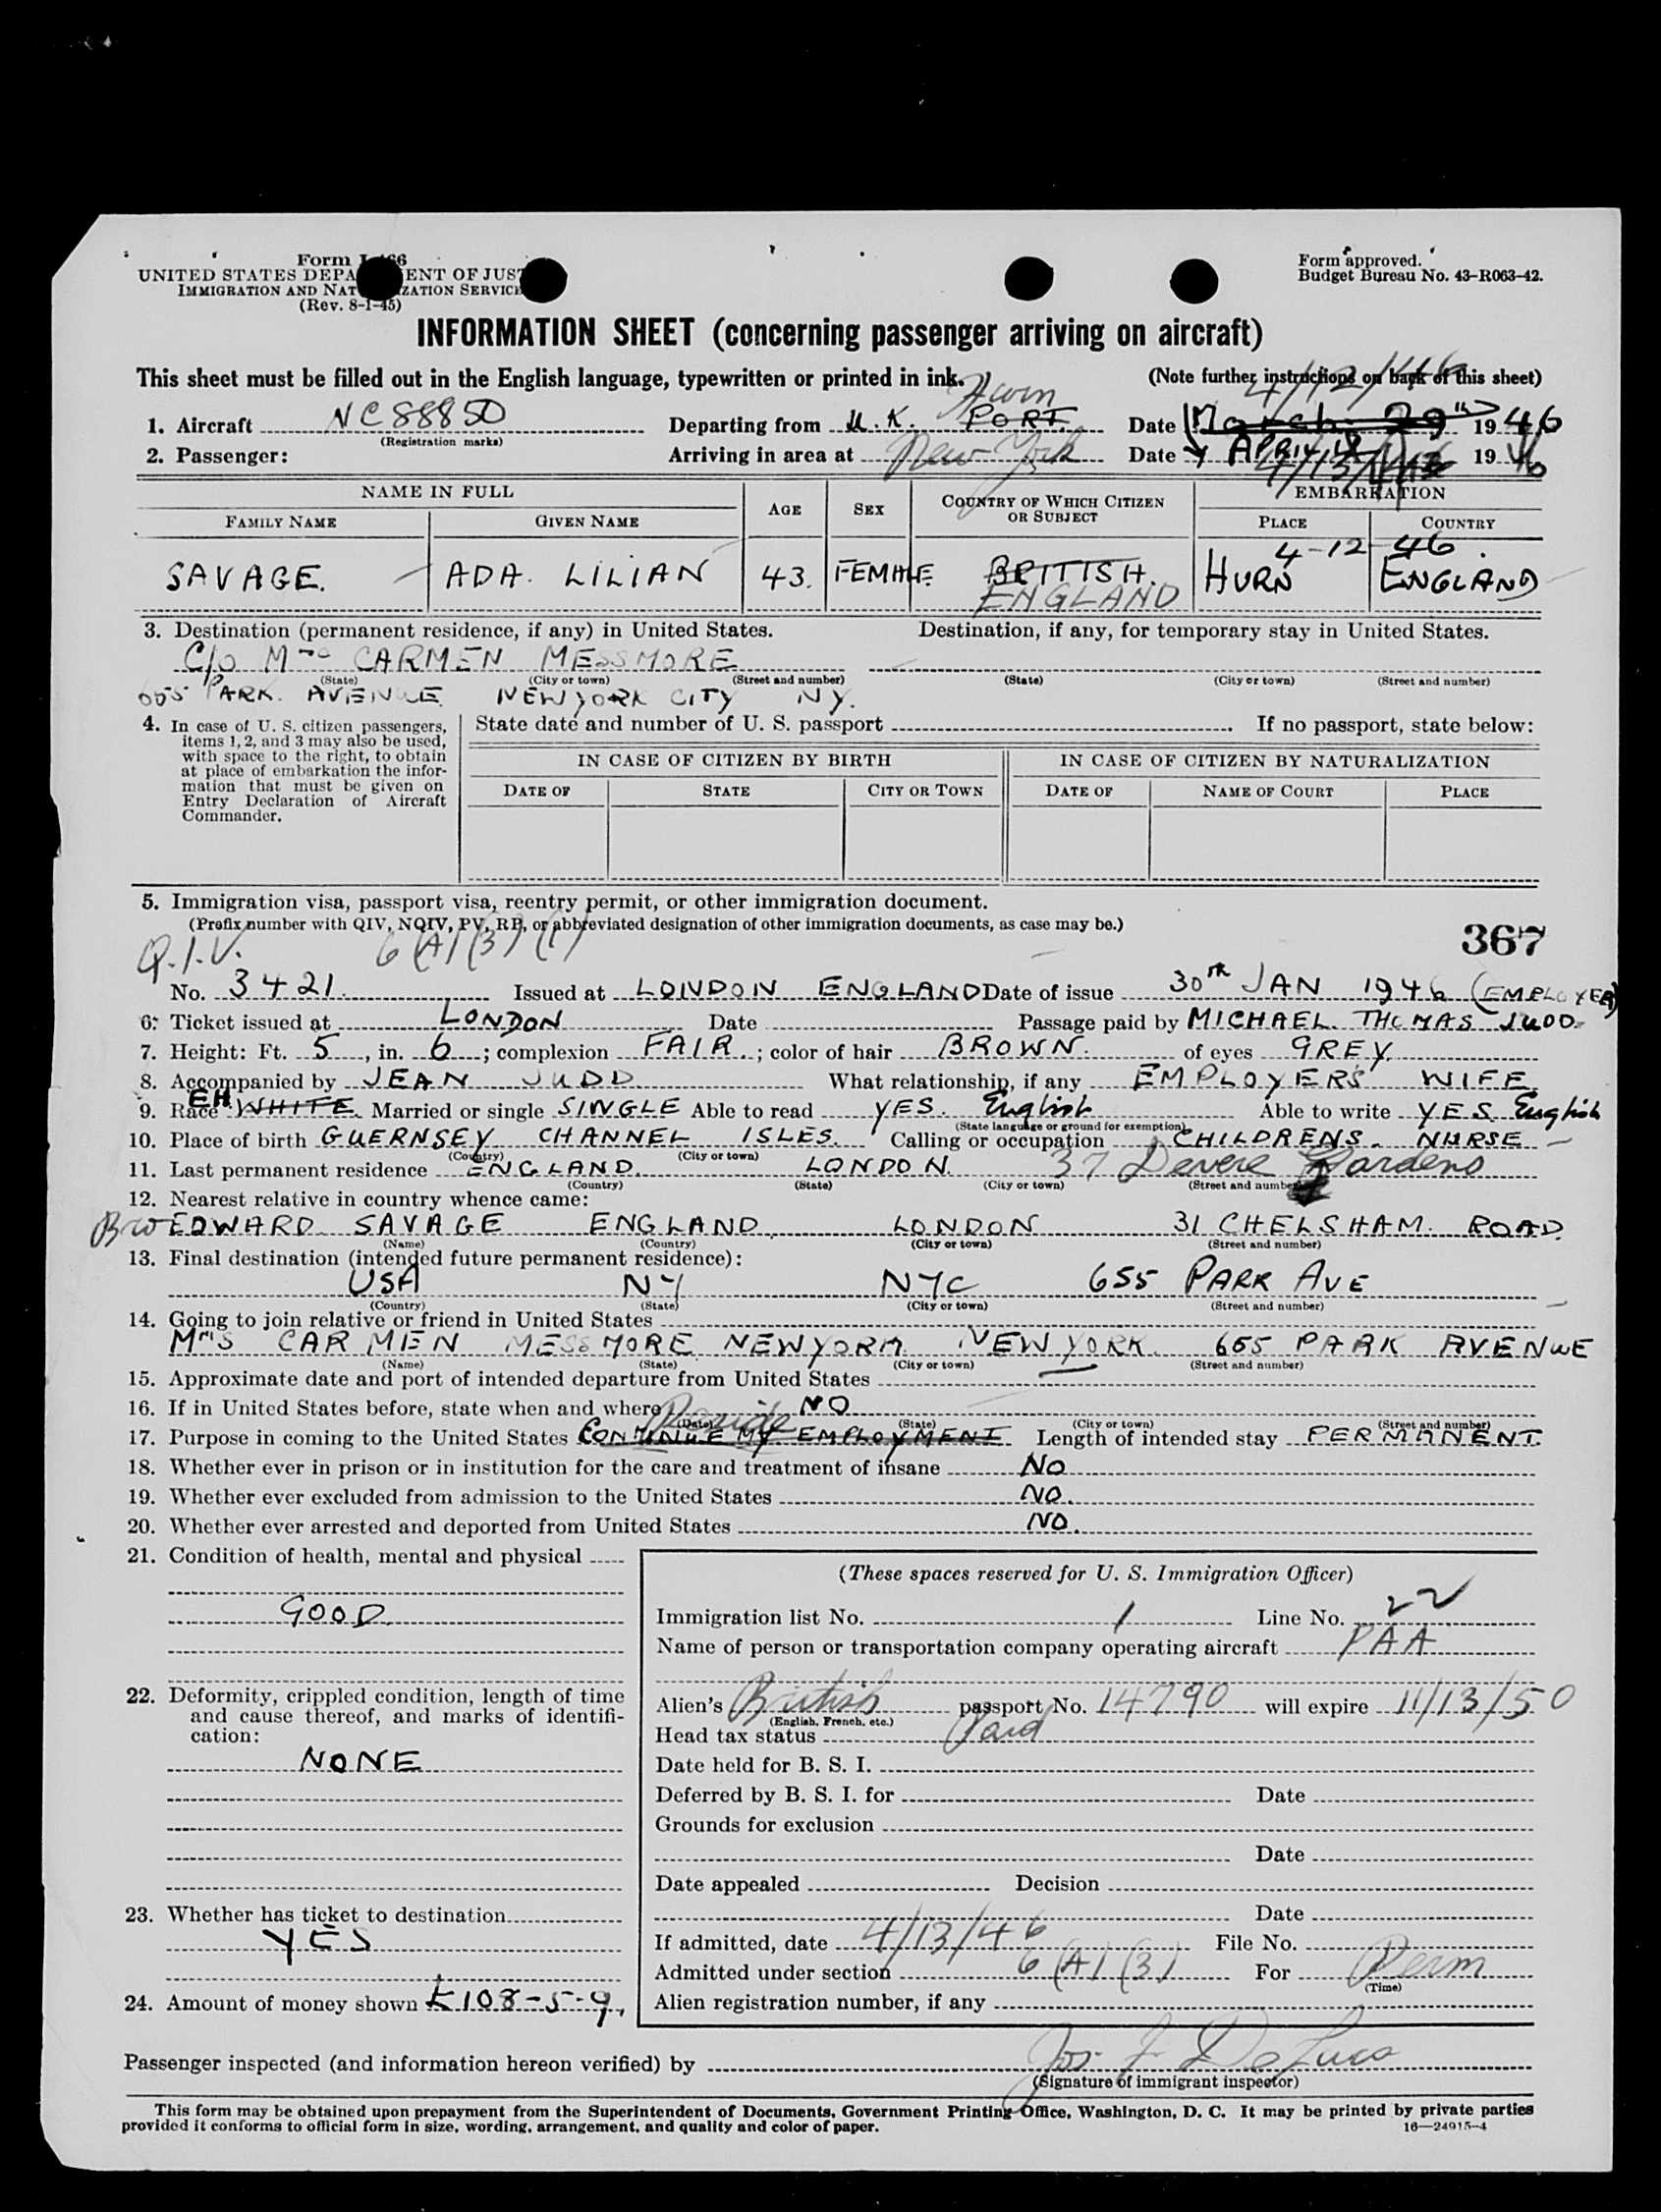 Form I-466
UNITED STATES DEPARTMENT OF JUSTICE
IMMIGRATION AND NATURALIZATION SERVICE
(Rev. 8-1-45)
Form approved.
Budget Bureau No. 43-R063-42.
INFORMATION SHEET (concerning passenger arriving on aircraft)
This sheet must be filled out in the English language, typewritten or printed in ink.
(Note further instructions on back of this sheet)
Hurn 4/12/46
1. Aircraft NC 88850 Departing from U.K. PORT Date March 29th 1946
(Registration marks)
2. Passenger: Arriving in area at New York Date APRIL 4/13/46 1946
NAME IN FULL AGE SEX COUNTRY OF WHICH CITIZEN OR SUBJECT EMBARKATION
FAMILY NAME GIVEN NAME PLACE COUNTRY
4-12-46.
SAVAGE. ADA. LILIAN 43. FEMALE. BRITISH. HURN ENGLAND
ENGLAND
3. Destination (permanent residence, if any) in United States. Destination, if any, for temporary stay in United States.
C/O Mrs CARMEN MESSMORE
(State) (City or town) (Street and number) (State) (City or town) (Street and number)
655 PARK. AVENUE. NEW YORK CITY NY.
4. In case of U. S. citizen passengers, items 1, 2, and 3 may also be used, with space to the right, to obtain at place of embarkation the information that must be given on Entry Declaration of Aircraft Commander.
State date and number of U. S. passport If no passport, state below:
IN CASE OF CITIZEN BY BIRTH IN CASE OF CITIZEN BY NATURALIZATION
DATE OF STATE CITY OR TOWN DATE OF NAME OF COURT PLACE
5. Immigration visa, passport visa, reentry permit, or other immigration document.
(Prefix number with QIV, NQIV, PV, RP, or abbreviated designation of other immigration documents, as case may be.)
367
Q.I.V. 6 (A) (3) (1)
No. 3421. Issued at LONDON ENGLAND Date of issue 30TH JAN 1946 (EMPLOYER)
6. Ticket issued at LONDON Date Passage paid by MICHAEL. THOMAS JUDD.
7. Height: Ft. 5, in. 6; complexion FAIR.; color of hair BROWN. of eyes GREY.
8. Accompanied by JEAN JUDD. What relationship, if any EMPLOYERS WIFE.
9. Race EH WHITE. Married or single SINGLE Able to read YES. English Able to write YES. English
(State language or ground for exemption)
10. Place of birth GUERNSEY CHANNEL ISLES. Calling or occupation CHILDRENS. NURSE
(Country) (City or town)
11. Last permanent residence ENGLAND. LONDON. 37 Devere Gardens
(Country) (State) (City or town) (Street and number)
12. Nearest relative in country whence came:
Bro EDWARD SAVAGE ENGLAND. LONDON 31 CHELSHAM. ROAD.
(Name) (Country) (City or town) (Street and number)
13. Final destination (intended future permanent residence):
USA NY NYC 655 PARK AVE
(Country) (State) (City or town) (Street and number)
14. Going to join relative or friend in United States
Mrs CARMEN MESSMORE NEW YORK. NEW YORK. 655 PARK AVENUE
(Name) (State) (City or town) (Street and number)
15. Approximate date and port of intended departure from United States
16. If in United States before, state when and where NO
(Date) (State) (City or town) (Street and number)
Reside
17. Purpose in coming to the United States CONTINUE MY EMPLOYMENT Length of intended stay PERMANENT.
18. Whether ever in prison or in institution for the care and treatment of insane NO
19. Whether ever excluded from admission to the United States NO.
20. Whether ever arrested and deported from United States NO.
21. Condition of health, mental and physical
GOOD.
22. Deformity, crippled condition, length of time and cause thereof, and marks of identification:
NONE
23. Whether has ticket to destination
YES
24. Amount of money shown £108-5-9.
(These spaces reserved for U. S. Immigration Officer)
Immigration list No. 1 Line No. 22
Name of person or transportation company operating aircraft PAA
Alien's British passport No. 14790 will expire 11/13/50
(English, French, etc.)
Head tax status Paid
Date held for B. S. I.
Deferred by B. S. I. for Date
Grounds for exclusion
Date
Date appealed Decision
Date
If admitted, date 4/13/46 File No.
Admitted under section 6 (A) (3) For Perm
(Time)
Alien registration number, if any
Passenger inspected (and information hereon verified) by Jos F DeLuca
(Signature of immigrant inspector)
This form may be obtained upon prepayment from the Superintendent of Documents, Government Printing Office, Washington, D. C. It may be printed by private parties
provided it conforms to official form in size, wording, arrangement, and quality and color of paper.
16—24915-4